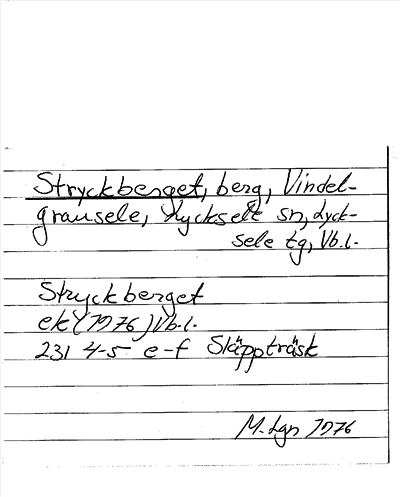 Stryckberget, berg, Vindel-
gransele, Lycksele sn, Lyck-
sele tg, Vb.l.
Stryckberget
ek (1976) Vb.l.
231 4-5 e-f Släppträsk
M. Lgn 1976